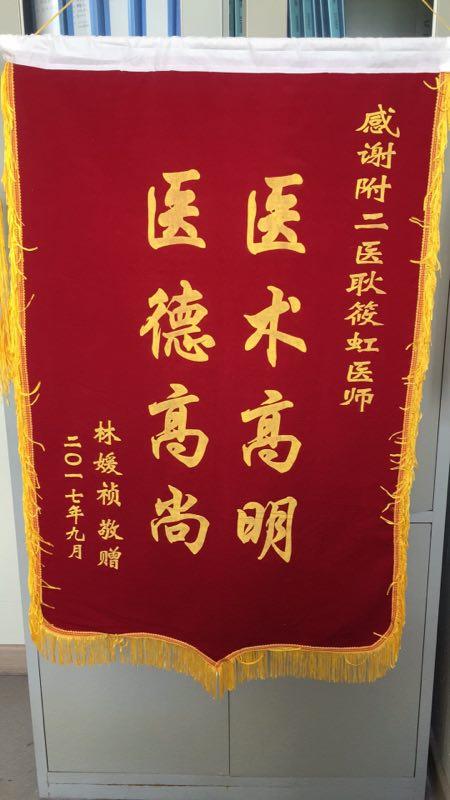 感谢附二医耿筱虹医师
医术高明
医德高尚
林媛祯 敬赠
二〇一七年九月